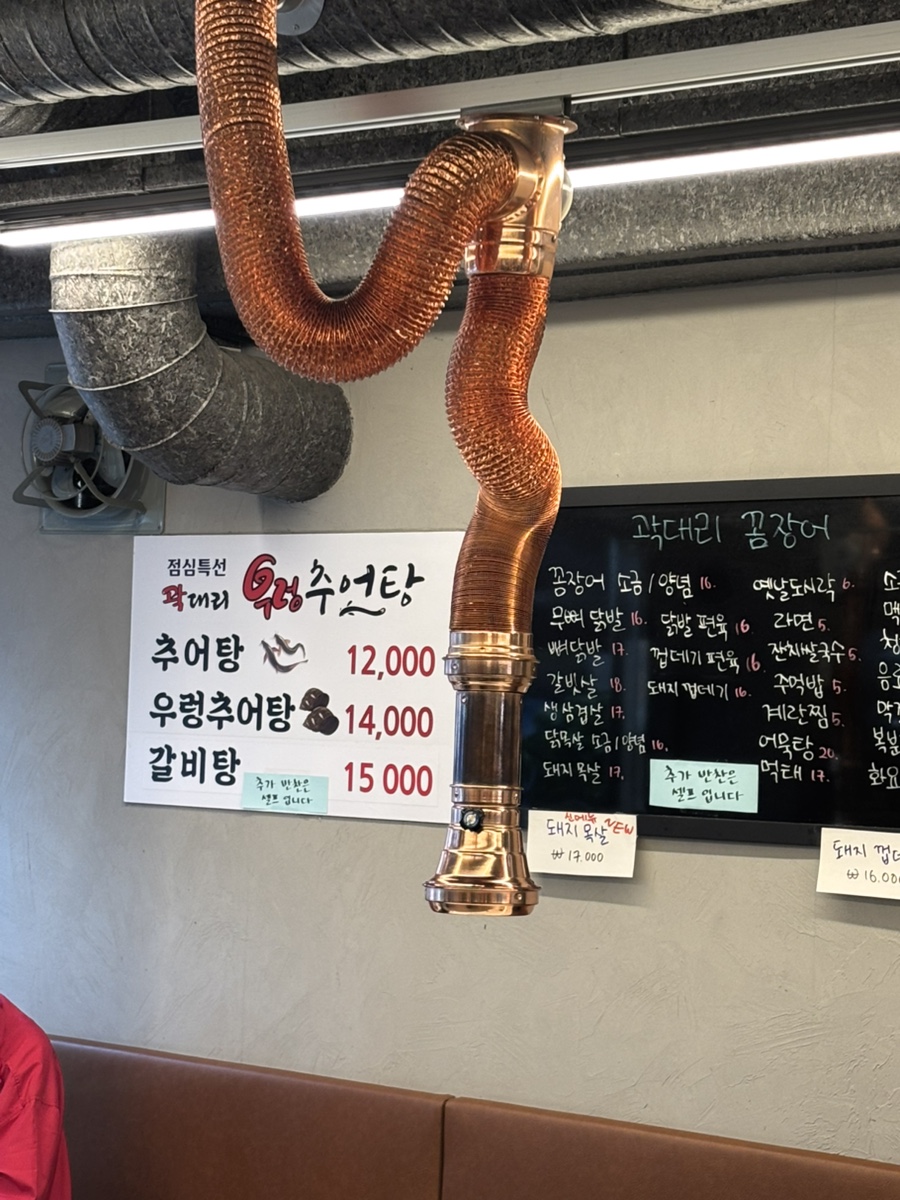 점심특선
곽대리 우렁추어탕
추어탕 12,000
우렁추어탕 14,000
갈비탕 15 000
추가 반찬은
셀프 입니다
곽대리 꼼장어
꼼장어 소금/양념 16.
무뼈 닭발 16.
뼈닭발 17.
갈빗살 18.
생삼겹살 17.
닭목살 소금/양념 16.
돼지 목살 17.
닭발 편육 16
껍데기 편육 16
돼지 껍데기 16.
옛날도시락 6.
라면 5.
잔치쌀국수 5.
주먹밥 5.
계란찜 5.
어묵탕 20.
먹태 17.
추가 반찬은
셀프 입니다
신메뉴 NEW
돼지 목살
₩17.000
돼지 껍데
₩16.000
음료
복분
화요